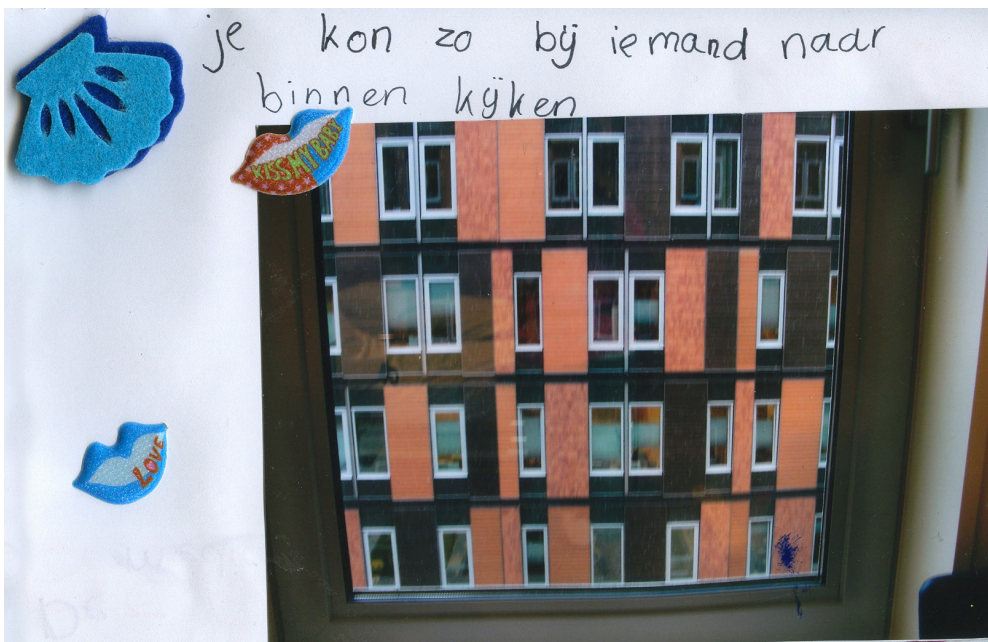 je kon zo bij iemand naar
binnen kijken
KISS MY BABY
LOVE